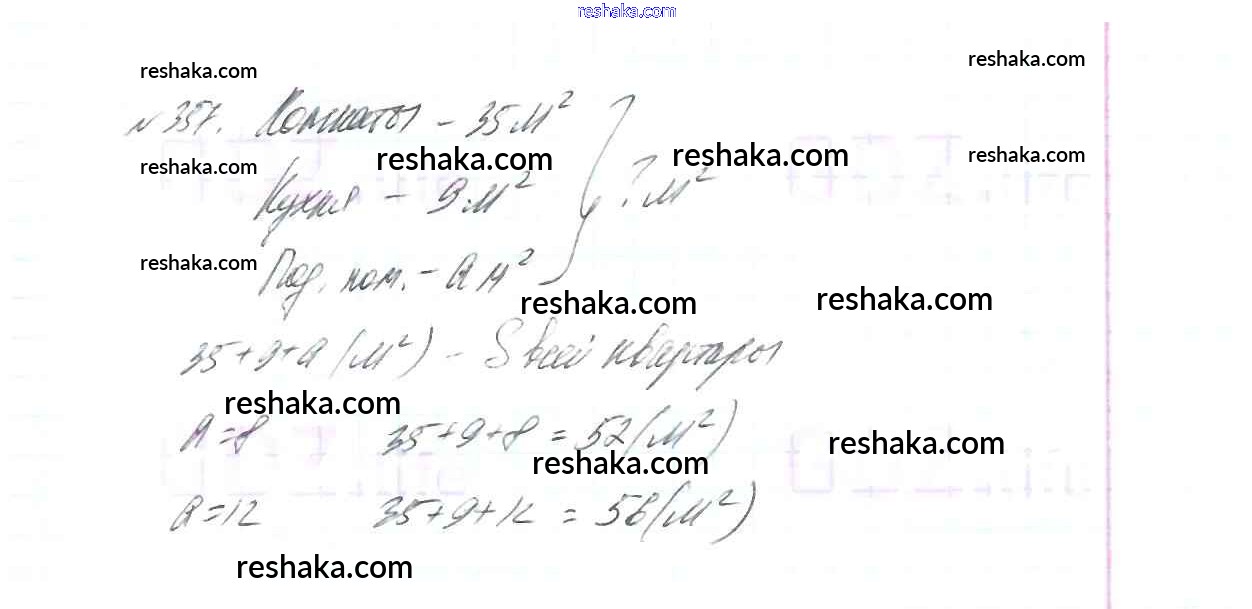 reshaka.com
reshaka.com
reshaka.com
№ 357. Комнаты - 35 м²
reshaka.com
reshaka.com
reshaka.com
reshaka.com
Кухня - 9 м²
? м²
reshaka.com
Под. ком. - a м²
reshaka.com
reshaka.com
35+9+a (м²) - S всей квартиры
reshaka.com
a=8 35+9+8 = 52 (м²)
reshaka.com
reshaka.com
a=12 35+9+12 = 56 (м²)
reshaka.com